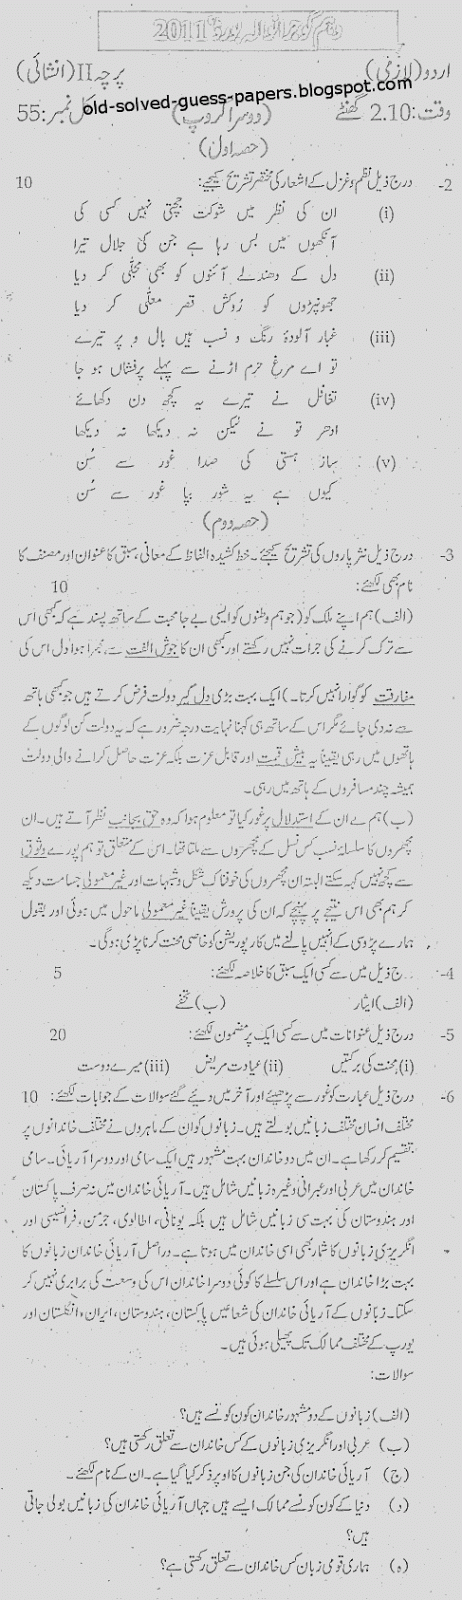 دہم گوجرانوالہ بورڈ 2011
اردو (لازمی) پرچہ II (انشائی)
وقت: 2.10 گھنٹے (دوسرا گروپ) کل نمبر: 55
old-solved-guess-papers.blogspot.com
(حصہ اول)
2- درج ذیل نظم و غزل کے اشعار کی مختصر تشریح کیجیے: 10
(i) ان کی نظر میں شوکت جچتی نہیں کسی کی
آنکھوں میں بس رہا ہے جن کی جلال تیرا
(ii) دل کے دھندلے آئنوں کو بھی مجلّٰی کر دیا
جھونپڑوں کو رُوکش قصر معلّٰی کر دیا
(iii) غبار آلودۂ رنگ و نسب ہیں بال و پر تیرے
تو اے مرغ حرم اڑنے سے پہلے پرفشاں ہو جا
(iv) تغافل نے تیرے یہ کچھ دن دکھائے
ادھر تو نے لیکن نہ دیکھا نہ دیکھا
(v) ساز ہستی کی صدا غور سے سُن
کیوں ہے یہ شور بپا غور سے سُن
(حصہ دوم)
3- درج ذیل نثر پاروں کی تشریح کیجئے۔ خط کشیدہ الفاظ کے معانی، سبق کا عنوان اور مصنف کا
نام بھی لکھئے: 10
(الف) ہم اپنے ملک کو (جو ہم وطنوں کو ایسی بے جا محبت کے ساتھ پسند ہے کہ کبھی اس
سے ترک کرنے کی جرات نہیں رکھتے اور کبھی ان کا جوش الفت سے بھرا ہوا دل اس کی
مفارقت کو گوارا نہیں کرتا۔) ایک بہت بڑی دل گیر دولت فرض کرتے ہیں جو کبھی ہاتھ
سے نہ دی جائے مگر اس کے ساتھ ہی کہنا نہایت درجہ ضرور ہے کہ یہ دولت کن لوگوں کے
ہاتھوں میں رہی یقیناً یہ بیش قیمت اور قابل عزت بلکہ عزت حاصل کرانے والی دولت
ہمیشہ چند مسافروں کے ہاتھ میں رہی۔
(ب) ہم نے ان کے استدلال پر غور کیا تو معلوم ہوا کہ وہ حق بجانب نظر آتے ہیں۔ ان
مچھروں کا سلسلۂ نسب کس نسل کے مچھروں سے ملتا تھا۔ اس کے متعلق تو ہم پورے وثوق
سے کچھ نہیں کہہ سکتے البتہ ان مچھروں کی خوفناک شکل و شباہت اور غیر معمولی جسامت دیکھ
کر ہم بھی اس نتیجے پر پہنچے کہ ان کی پرورش یقیناً غیر معمولی ماحول میں ہوئی اور بقول
ہمارے پڑوسی کے انہیں پالنے میں کارپوریشن کو خاصی محنت کرنا پڑی ہوگی۔
4- درج ذیل میں سے کسی ایک سبق کا خلاصہ لکھئے: 5
(الف) ایثار (ب) تحفے
5- درج ذیل عنوانات میں سے کسی ایک پر مضمون لکھئے: 20
(i) محنت کی برکتیں (ii) عیادت مریض (iii) میرے دوست
6- درج ذیل عبارت کو غور سے پڑھیئے اور آخر میں دیئے گئے سوالات کے جوابات لکھئے: 10
مختلف انسان مختلف زبانیں بولتے ہیں۔ زبانوں کو ان کے ماہروں نے مختلف خاندانوں پر
تقسیم کر رکھا ہے۔ ان میں دو خاندان بہت مشہور ہیں ایک سامی اور دوسرا آریائی۔ سامی
خاندان میں عربی اور عبرانی وغیرہ زبانیں شامل ہیں۔ آریائی خاندان میں نہ صرف پاکستان
اور ہندوستان کی بہت سی زبانیں شامل ہیں بلکہ یونانی، اطالوی، جرمن، فرانسیسی اور
انگریزی زبانوں کا شمار بھی اسی خاندان میں ہوتا ہے۔ دراصل آریائی خاندان زبانوں کا
بہت بڑا خاندان ہے اور اس سلسلے کا کوئی دوسرا خاندان اس کی وسعت کی برابری نہیں کر
سکتا۔ زبانوں کے آریائی خاندان کی شعاعیں پاکستان، ہندوستان، ایران، انگلستان اور
یورپ کے مختلف ممالک تک پھیلی ہوئی ہیں۔
سوالات:
(الف) زبانوں کے دو مشہور خاندان کون کونسے ہیں؟
(ب) عربی اور انگریزی زبانوں کے کس خاندان سے تعلق رکھتی ہیں؟
(ج) آریائی خاندان کی جن زبانوں کا اوپر ذکر کیا گیا ہے۔ ان کے نام لکھئے۔
(د) دنیا کے کون کونسے ممالک ایسے ہیں جہاں آریائی خاندان کی زبانیں بولی جاتی
ہیں؟
(ہ) ہماری قومی زبان کس خاندان سے تعلق رکھتی ہے؟